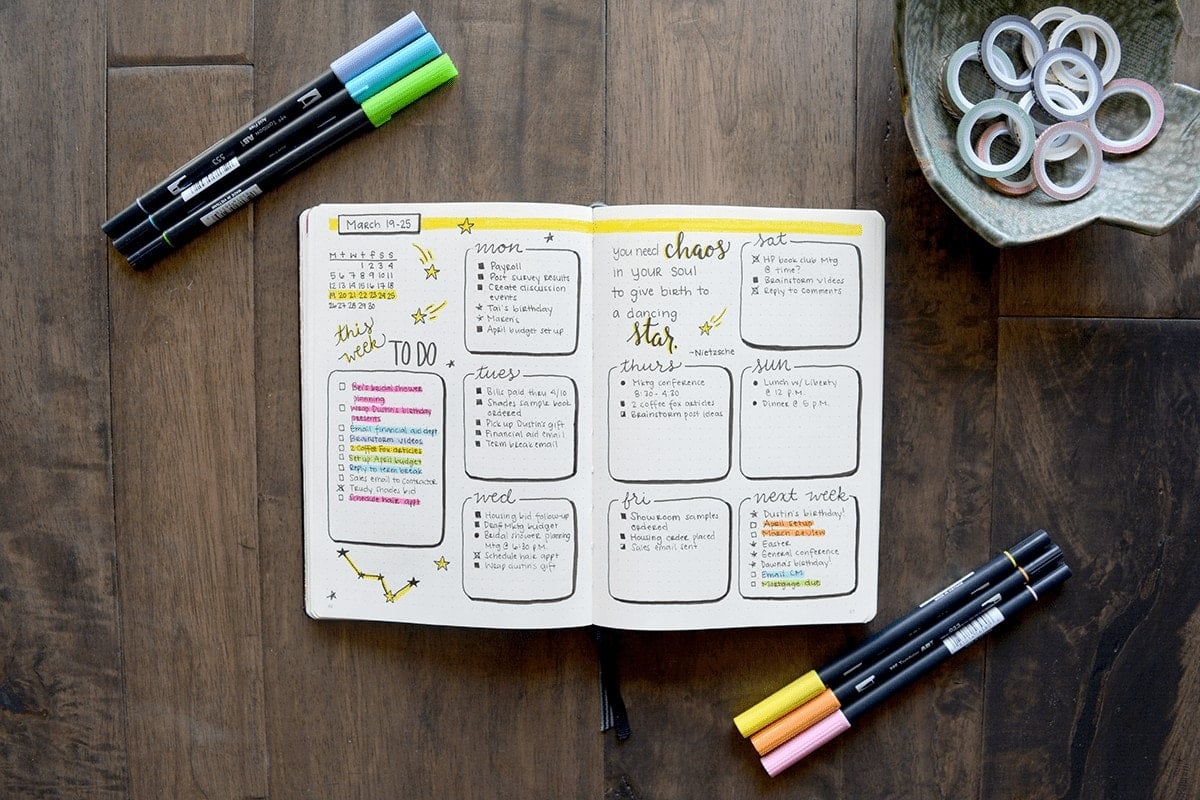 March 19-25
M T W T F S S
1 2 3 4
5 6 7 8 9 10 11
12 13 14 15 16 17 18
M 20 21 22 23 24 25
26 27 28 29 30
this
week TO DO
Bel's bridal shower
planning
Wrap Dustin's birthday
presents
Email financial aid dept
Brainstorm videos
2 Coffee Fox articles
Set up April budget
Reply to term break
Sales email to contractor
Trudy Shades bid
Schedule hair appt
mon
Payroll
Post survey results
Create discussion
events
Tai's birthday
Maren's
April budget set up
tues
Bills paid thru 4/10
Shades sample book
ordered
Pick up Dustin's gift
Financial aid email
Term break email
wed
Housing bid follow-up
Draft Mktg budget
Bridal shower planning
Mtg @ 6:30 p.m.
Schedule hair appt
Wrap Dustin's gift
you need chaos
in your soul
to give birth to
a dancing
star.
-Nietzsche
thurs
Mktg conference
8:30 - 4:30
2 coffee fox articles
Brainstorm post ideas
fri
Showroom samples
ordered
Housing order placed
Sales email sent
sat
HP book club Mtg
@ time?
Brainstorm videos
Reply to comments
sun
Lunch w/ Liberty
@ 12 p.m.
Dinner @ 5 p.m.
next week
Dustin's birthday!
April setup
March review
Easter
General conference
Dawna's birthday!
Email CM
Mortgage due
553
ABT